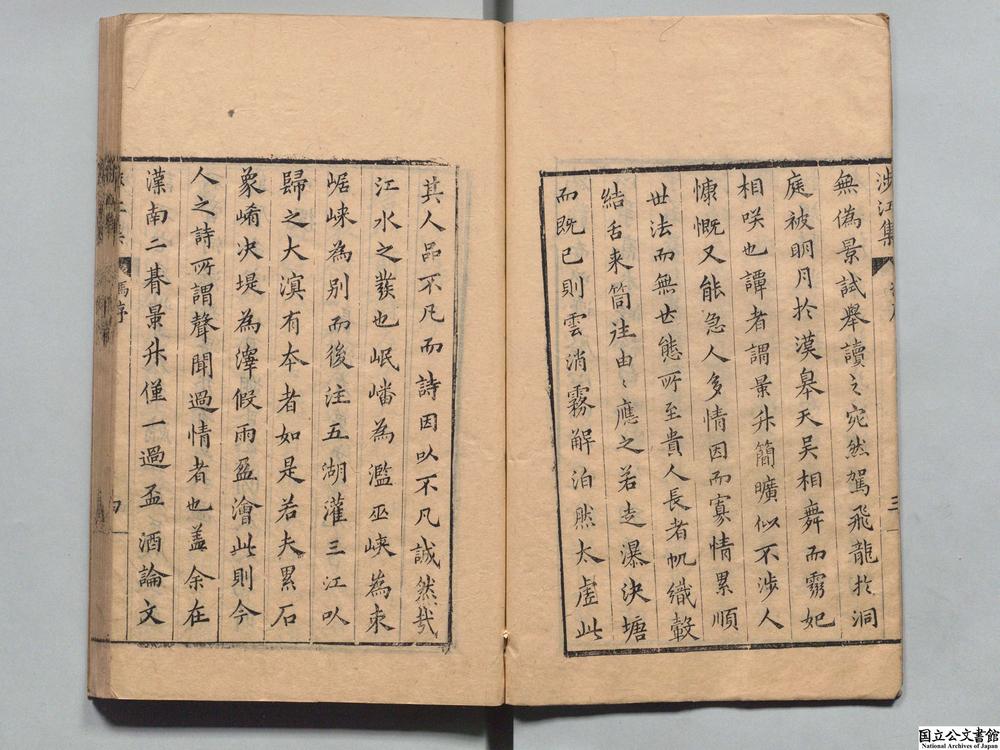 涉江集
三
無偽景試舉讀之宛然駕飛龍於洞
庭被明月於漢皋天吳相舞而靈妃
相咲也譚者謂景升簡曠似不涉人
慷慨又能急人多情因而寡情累順
世法而無世態所至貴人長者帆織轂
結舌来筒注由〻應之若走瀑決塘
而既已則雲消霧解泊然太虛此
其人品不凡而詩因以不凡誠然㢤
江水之𤼵也岷嶓為濫巫峽為束
崌崍為别而後注五湖灌三江以
歸之大溟有本者如是若夫累石
象崤决堤為滹假雨盈澮此則今
人之詩所謂聲聞過情者也盖余在
漢南二朞景升僅一過盃酒論文
馮序
國立公文書館
National Archives of Japan